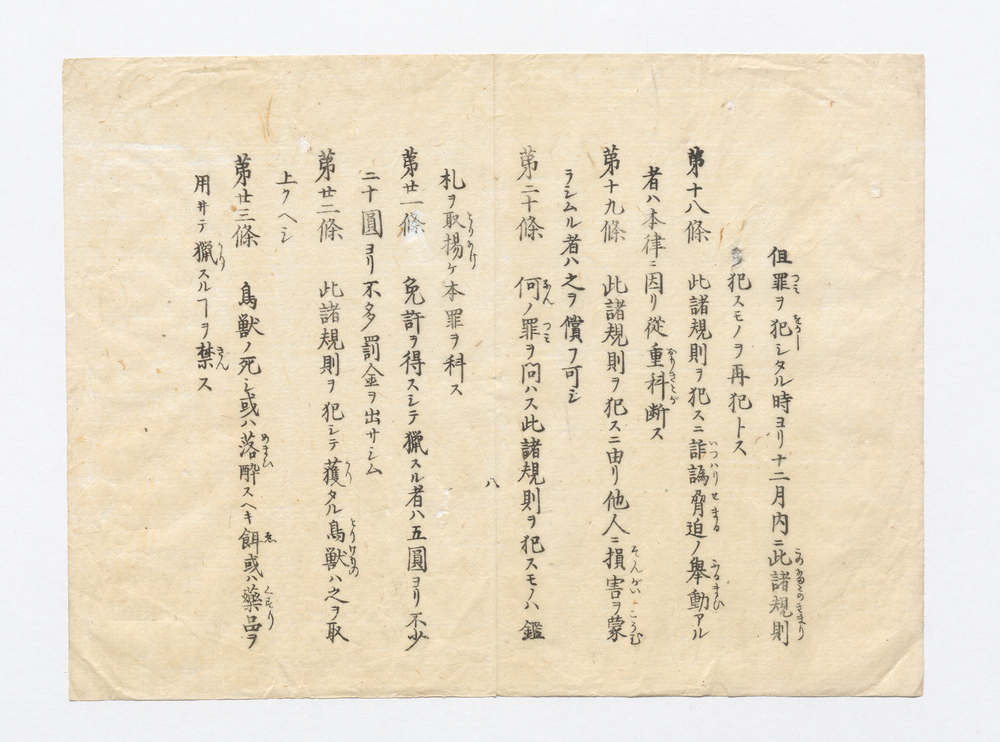 但罪ヲ犯シタル時ヨリ十二月内ニ此諸規則
ヲ犯スモノヲ再犯トス
第十八條　此諸規則ヲ犯スニ詐譌脅迫ノ舉動アル
者ハ本律ニ因リ從重科断ス
第十九條　此諸規則ヲ犯スニ由リ他人ニ損害ヲ蒙
ラシムル者ハ之ヲ償フ可シ
第二十條　何ノ罪ヲ問ハス此諸規則ヲ犯スモノハ鑑
八
札ヲ取揚ケ本罪ヲ科ス
第廿一條　免許ヲ得スシテ獵スル者ハ五圓ヨリ不少
二十圓ヨリ不多罰金ヲ出サシム
第廿二條　此諸規則ヲ犯シテ獲タル鳥獸ハ之ヲ取
上クヘシ
第廿三條　鳥獸ノ死シ或ハ落酔スヘキ餌或ハ藥品ヲ
用井テ獵スルヿヲ禁ス